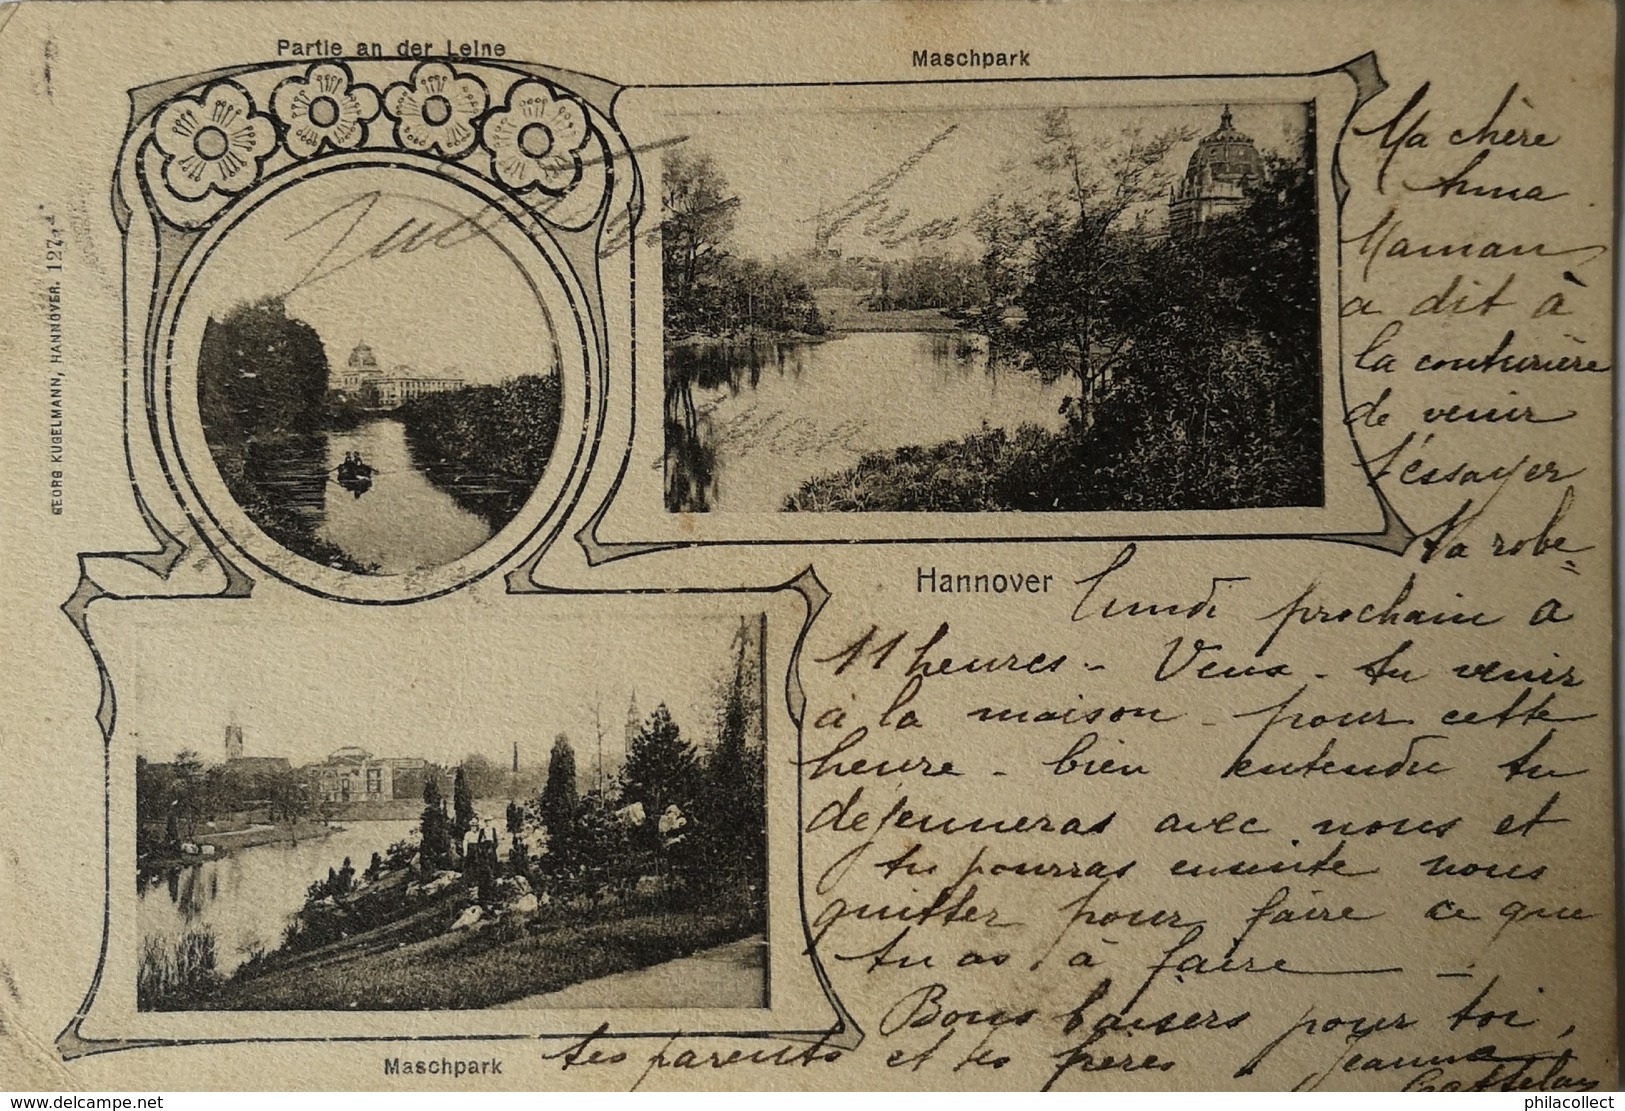 Partie an der Leine
Maschpark
GEORG KUGELMANN, HANNOVER. 127
Ma chère
Anna
Maman
a dit à
la couturière
de venir
t'essayer
ta robe
Hannover
lundi prochain a
11 heures - Veux-tu venir
à la maison pour cette
heure - bien entendu tu
dejeuneras avec nous et
tu pourras ensuite nous
quitter pour faire ce que
tu as à faire
Bons baisers pour toi,
tes parents et tes frères Jeanne
Maschpark
http://www.delcampe.net
philacollect